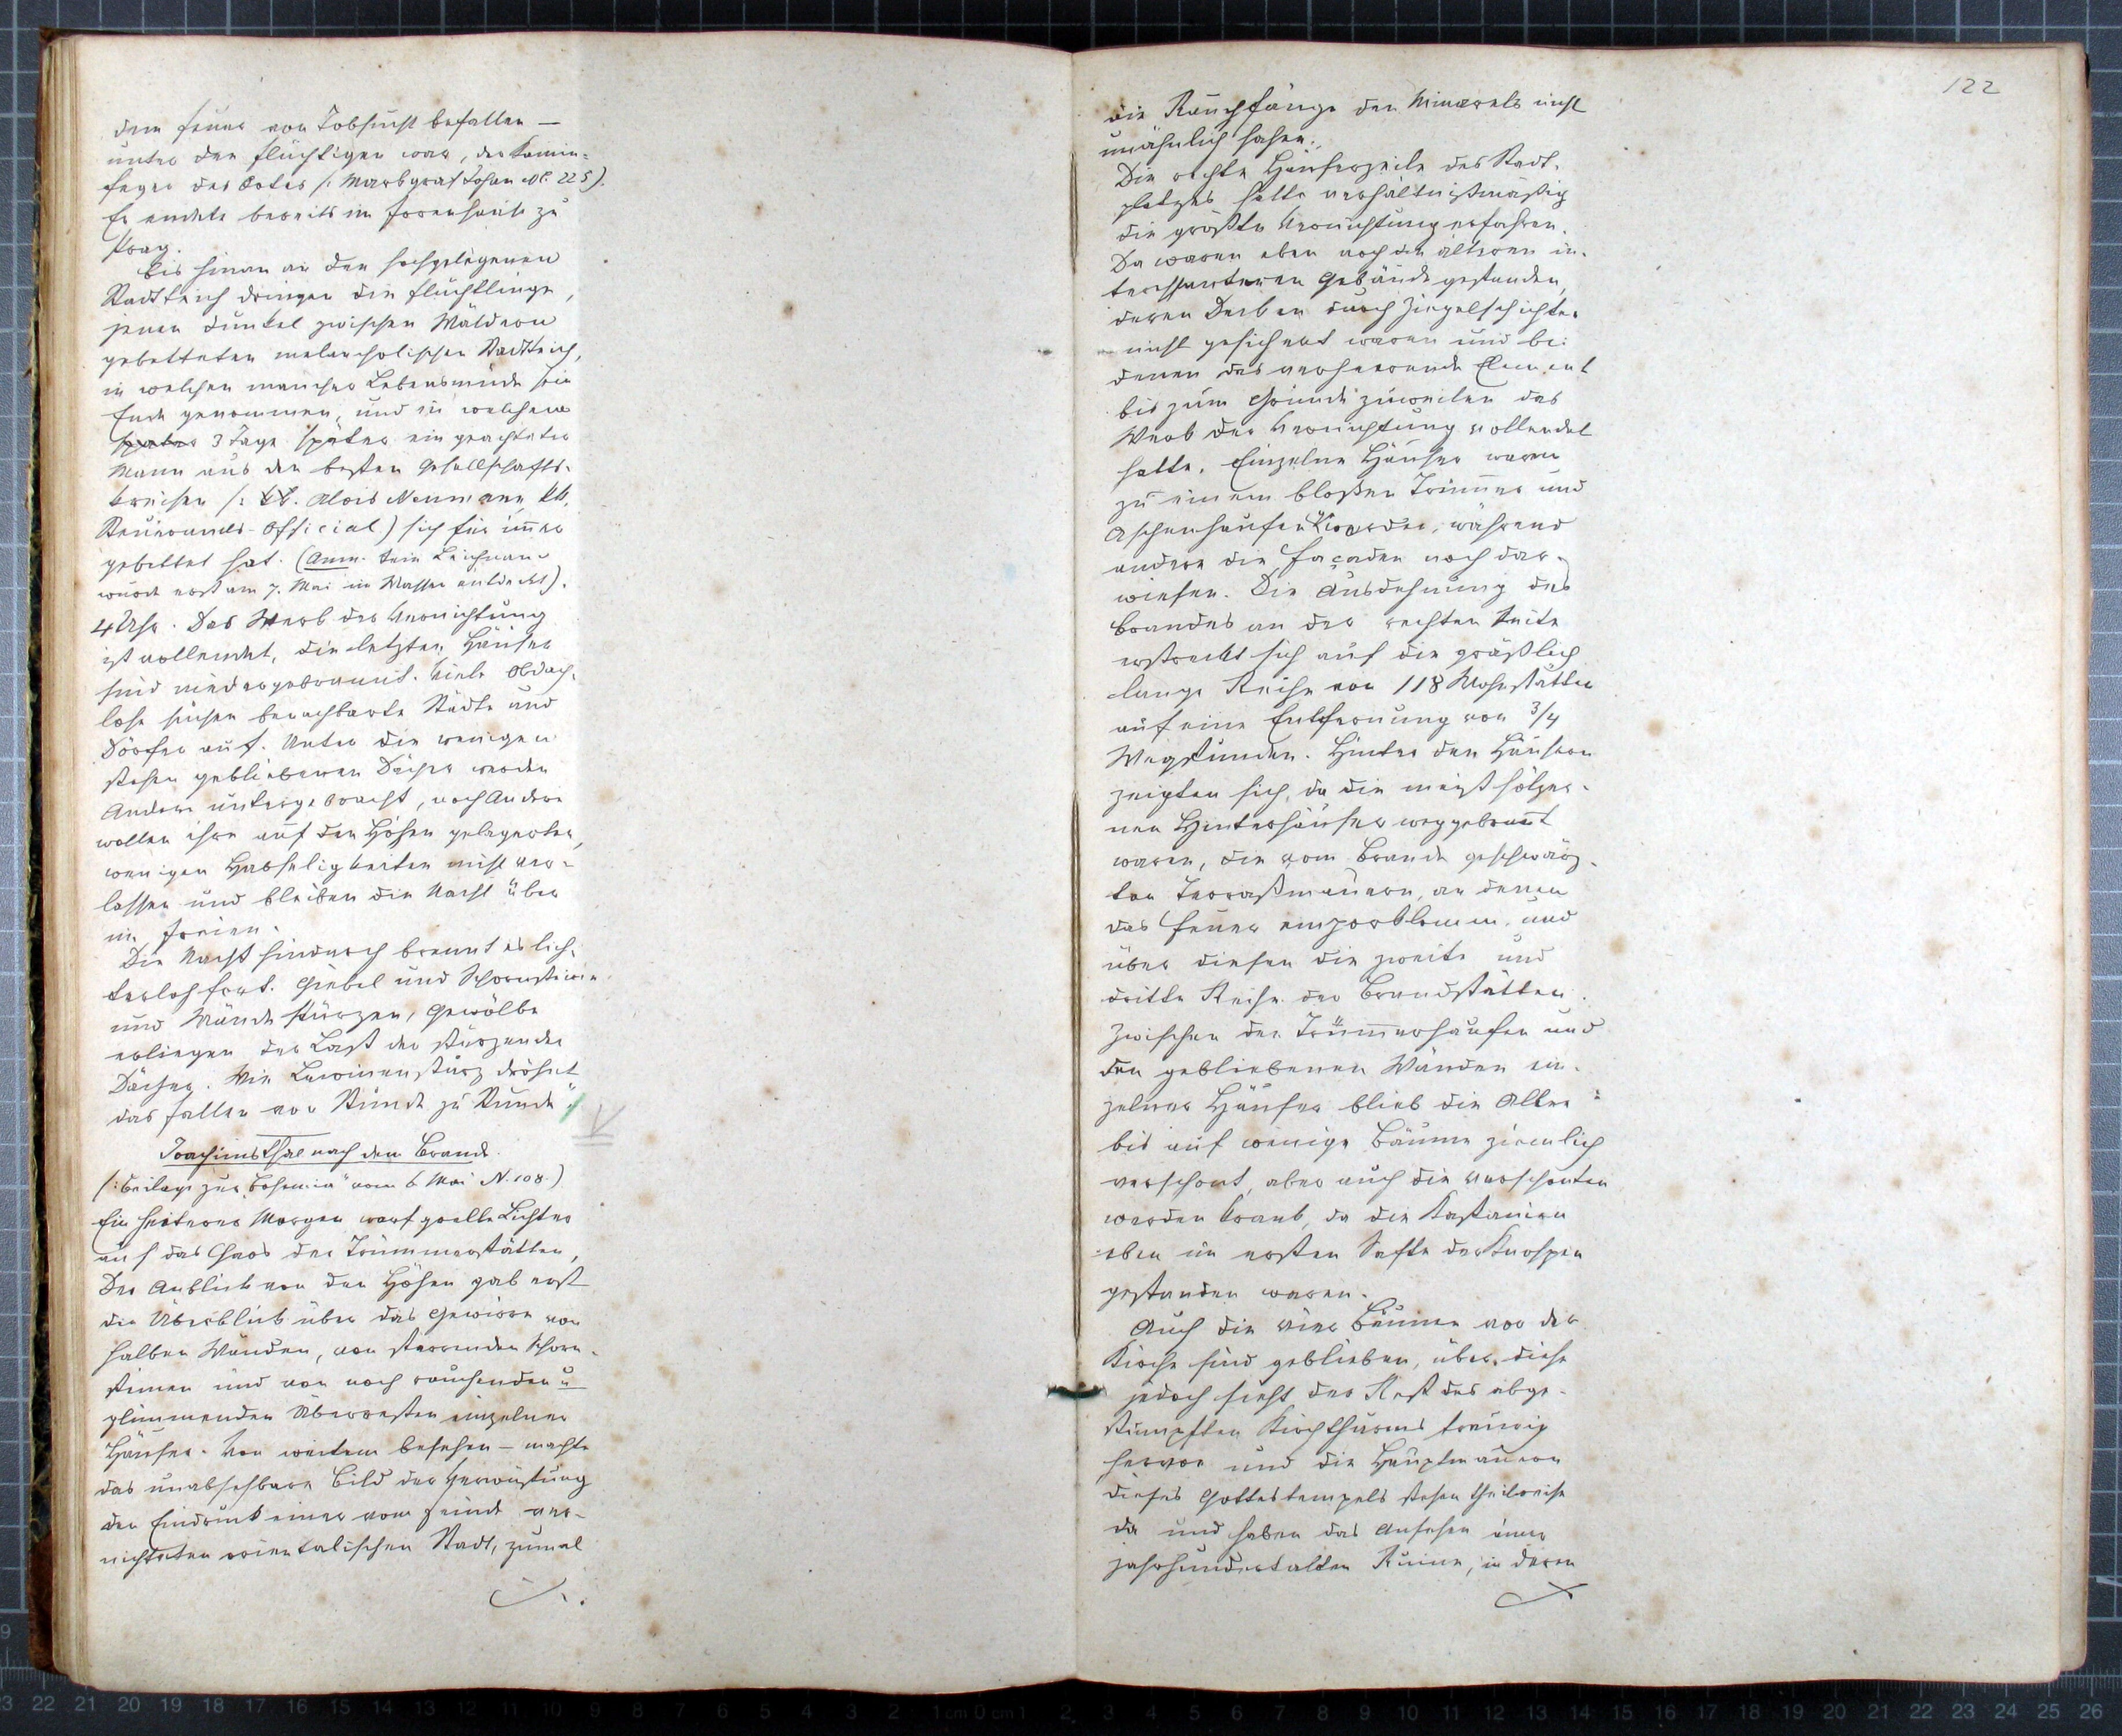 dem Feuer von Tobsucht befallen —
unter den flüchtigen war, der Kamin-
feger des Ortes (: Markgraf Johan No. 225).
Er endete bereits im Irrenhause zu
Prag.
Bis hinan an den hochgelegenen
Stadtteich dringen die Flüchtlinge,
jenen dunkel zwischen Wäldern
gebetteten melancholischen Stadtteich,
in welchen mancher Lebensmüde sein
Ende genommen, und in welchem
später 3 Tage später ein geachteter
Mann aus den besten Gesellschafts-
kreisen (: Alois Neumann, kk.
Steueramts-Official) sich für im̄er
gebettet hat. (Anm. Sein Leichnam
wurde erst am 7. Mai im Wasser entdeckt).
4 Uhr. Das Werk der Vernichtung
ist vollendet, die letzten Häuser
sind niedergebran̄t. Viele Obdach-
lose suchen benachbarte Städte und
Dörfer auf. Unter die wenigen
stehen gebliebenen Dächer werden
Andere untergebracht, noch Andere
wollen ihre auf den Höhen gelagerten,
wenigen Habseligkeiten nicht ver-
lassen und bleiben die Nacht über
im Freien.
Die Nacht hindurch brennt es lich-
terloh fort. Giebel und Schornsteine
und Wände stürzen, Gewölbe
erliegen der Last der stürzenden
Dächer. Wie Lawinensturz dröhnt
das Fallen von Stunde zu Stunde"
Joachimsthal nach dem Brande.
(: Beilage zur „Bohemia" vom 6 Mai N. 108.)
Ein heiterer Morgen warf grelle Lichter
auf das Chaos der Trümmerstätten,
Der Anblick von den Höhen gab erst
den Überblick über das Gewirre von
halben Wänden, von starrenden Schorn-
steinen und von noch rauchenden u
glimmenden Überresten einzelner
Häuser. Von weitem besehen — machte
das unabsehbare Bild der Verwüstung
den Eindruck einer vom Feinde ver-
nichteten orientalischen Stadt, zumal
122
die Rauchfänge den Minarets nicht
unähnlich sahen.
Die rechte Häuserzeile des Stadt-
platzes hatte verhältnißmäßig
die größte Vernichtung erfahren.
Da waren eben noch die älteren in-
teressanteren Gebäude gestanden,
deren Decken durch Ziegelschichten
nicht gesichert waren und bei
denen das verheerende Element
bis zum Grunde zuweilen das
Werk der Vernichtung vollendet
hatte. Einzelne Häuser waren
zu einem bloßen Trüm̄er und
Aschenhaufen worden, während
andere die Façaden noch dar-
wiesen. Die Ausdehnung des
Brandes an der rechten Seite
erstreckt sich auf die gräßlich
lange Reihe von 118 Wohnstätten
auf eine Entfernung von 3/4
Wegstunden. Hinter den Häusern
zeigten sich, da die meist hölzer-
nen Hinterhäuser weggebrannt
waren, die vom Brande geschwärz-
ten Terraßmauern, an denen
das Feuer emporklomm, und
über diesen die zweite und
dritte Reihe der Brandstätten.
Zwischen den Trüm̄erhaufen und
den gebliebenen Wänden ein-
zelner Häuser blieb die Allee
bis auf wenige Bäume ziemlich
verschont, aber auch die verschonten
werden krank, da die Kastanien
eben im ersten Safte der Knospen
gestanden waren.
Auch die vier Bäume vor der
Kirche sind geblieben, über diese
jedoch sieht der Rest des abge-
stumpften Kirchthurms traurig
hervor und die Hauptmauern
dieses Gottestempels stehen theilweise
da und haben das Ansehen einer
jahrhundertalten Ruine, in deren